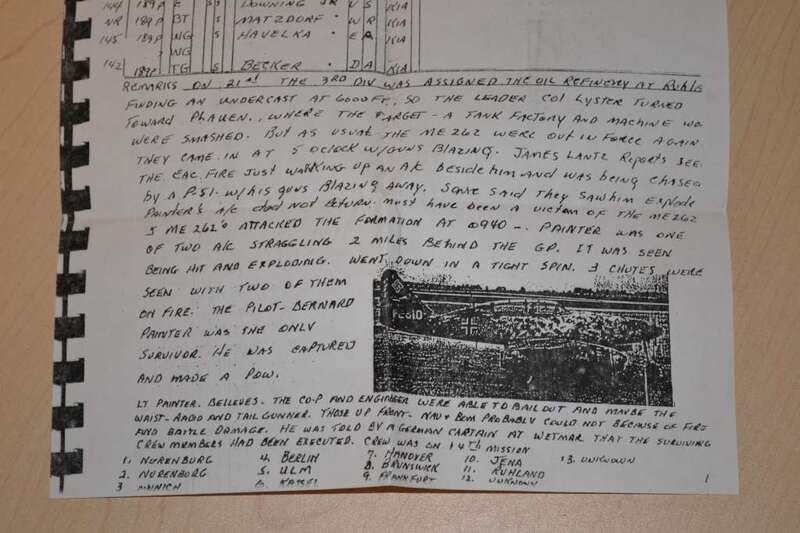 144 189P E SS DOWNING JR V S KIA
NR 189P BT S MATZDORF " W R KIA
145 189P NG S HAVELKA " E A KIA
? WG
142 189P TG S BECKER " D A KIA
REMARKS ON 21st THE 3RD DIV WAS ASSIGNED THE OIL REFINERY AT RUHLA
FINDING AN UNDERCAST AT 6000 FT, SO THE LEADER COL LYSTER TURNED
TOWARD PLAUEN, WHERE THE TARGET - A TANK FACTORY AND MACHINE WO
WERE SMASHED. BUT AS USUAL THE ME 262 WERE OUT IN FORCE AGAIN
THEY CAME IN AT 5 OCLOCK W/GUNS BLAZING. JAMES LANTZ REPORTS SEE
THE FIRE JUST WALKING UP AN A/C BESIDE HIM AND WAS BEING CHASED
BY A P.51. W/HIS GUNS BLAZING AWAY. SOME SAID THEY SAW HIM EXPLODE
PAINTER'S A/C DID NOT RETURN. MUST HAVE BEEN A VICTIM OF THE ME262
5 ME 262'S ATTACKED THE FORMATION AT 0940 -. PAINTER WAS ONE
OF TWO A/C STRAGGLING 2 MILES BEHIND THE GP. IT WAS SEEN
BEING HIT AND EXPLODING. WENT DOWN IN A TIGHT SPIN. 3 CHUTES WERE
SEEN WITH TWO OF THEM
ON FIRE. THE PILOT - BERNARD
PAINTER WAS THE ONLY
SURVIVOR. HE WAS CAPTURED
AND MADE A POW.
LT PAINTER. BELIEVES. THE CO-P AND ENGINEER WERE ABLE TO BAIL OUT AND MAYBE THE
WAIST-RADIO AND TAIL GUNNER. THOSE UP FRONT- NAV & BOM PROBABLY COULD NOT BECAUSE OF FIRE
AND BATTLE DAMAGE. HE WAS TOLD BY A GERMAN CAPTAIN AT WETMAR THAT THE SURVIVING
CREW MEMBERS HAD BEEN EXECUTED. CREW WAS ON 14TH MISSION
1. NURENBURG 4. BERLIN 7. HANOVER 10. JENA 13. UNKNOWN
2. NURENBORG 5. ULM 8. BRUNSWICK 11. RUHLAND
3 MUNICH 6. KASSEL 9. FRANKFURT 12. UNKNOWN
1